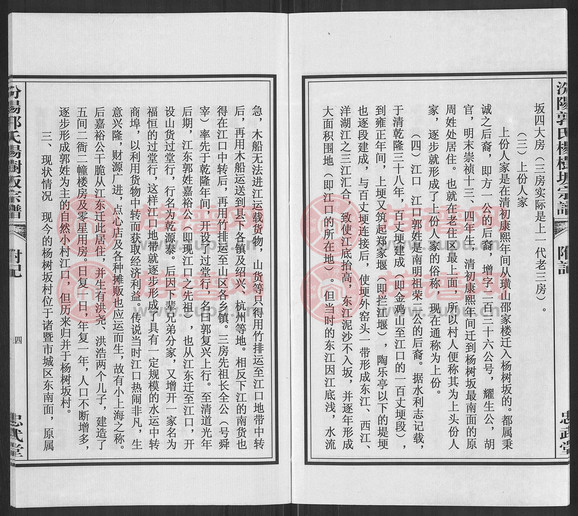 汾陽郭氏楊樹坂宗譜
附記
忠武堂
坂四大房（三房实际是上一代老三房）。
（三）上份人家
上份人家是在清初康熙年间从璜山邵家楼迁入杨树坂的。都属秉
诚之后裔，即方一公的后裔，增字二百二十六公号，耀生公，胡
官，明末崇祯十三、四年生，清初康熙年间迁到杨树坂最南面的原
周姓处居住。也就是在老住区最上面，所以村人便称其为上头份人
家，后逐步就形成了上份人家的俗称，现在通称为上份。
（四）江口 江口郭姓是南明祖荣一公的后裔。据水利志记载，
于清乾隆三十八年，百丈埂建成（即金鸡山至江口的一百丈埂段），
后不到十年间，上埂又筑起郑家堰（即拦江堰），陶乐亭以下的堤埂
也逐段建成，与百丈埂连接后，使埂外窑头一带形成东江、西江、
洋湖江之三江汇合，致使江底抬高，东江泥沙不入坂，并逐年形成
大面积围地（即江口的所在地）。但当时的东江因江底浅，水流
急，木船无法进江运载货物，山货等只得用竹排运至江口地带中转
后，再用木船运送到县下各镇及绍兴、杭州等地。相反下江的南货也
得在江口中转后，再用竹排运至山区各乡镇。三房先祖长全公（号舜
宰）率先于乾隆年间，开设了过堂行，名曰郭复兴上行。至清道光年
后期，江东郭姓嘉裕公（即现江口之先祖），也从江东迁至江口，开
设山货过堂行，行名为乾源泰。后因下辈兄弟分家，又增开一家名为
福恒的过堂行，这样江口地带就逐步形成了具有一定规模的水运中转
商埠，以利用货物中转而获取经济利益。传说当时江口热闹非凡，生
意兴隆，财源广进，点心店及各种摊贩也应运而生，故有小上海之称。
后嘉裕公干脆从江东迁此居住，并生有洪尧、洪浩两个儿子，建造了
五间二衙二幢楼房及零星用房。日复一日，年复一年，人口不断增多，
逐步形成郭姓为主的自然小村江口，但历来归并于杨树坂村。
三、现状情况 现今的杨树坂村位于诸暨市城区东南面，原属
汾陽郭氏楊樹坂宗譜
附記
四
忠武堂